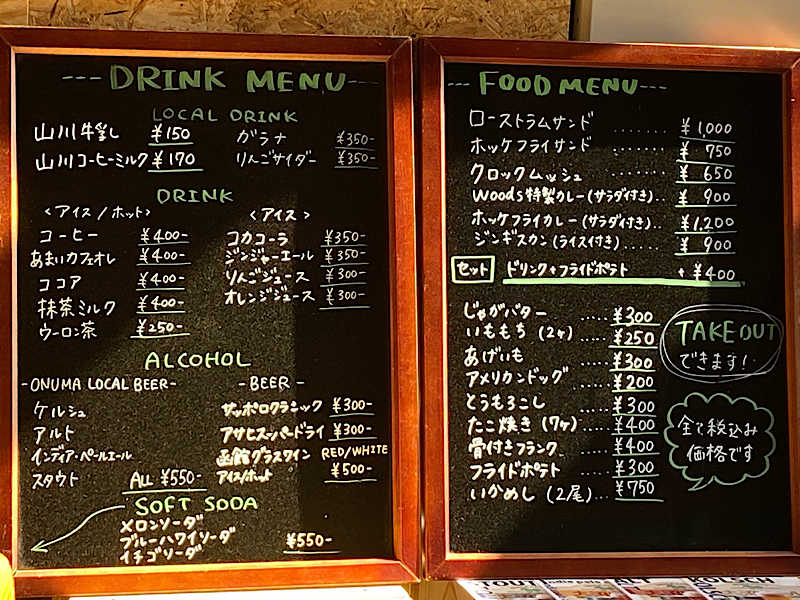 DRINK MENU
LOCAL DRINK
山川牛乳 ¥150 ガラナ ¥350-
山川コーヒーミルク ¥170 りんごサイダー ¥350-
DRINK
<アイス/ホット>
コーヒー ¥400-
あまいカフェオレ ¥400-
ココア ¥400-
抹茶ミルク ¥400-
ウーロン茶 ¥250-
<アイス>
コカコーラ ¥350-
ジンジャーエール ¥350-
りんごジュース ¥300-
オレンジジュース ¥300-
ALCOHOL
-ONUMA LOCAL BEER-
ケルシュ
アルト
インディア・ペールエール
スタウト ALL ¥550-
-BEER-
サッポロクラシック ¥300-
アサヒスーパードライ ¥300-
函館グラスワイン RED/WHITE
アイス/ホット ¥500-
SOFT SODA
メロンソーダ
ブルーハワイソーダ ¥550-
イチゴソーダ
FOOD MENU
ローストラムサンド ....... ¥1,000
ホッケフライサンド ....... ¥750
クロックムッシュ ....... ¥650
Woods特製カレー(サラダ付き).. ¥900
ホッケフライカレー(サラダ付き).. ¥1,200
ジンギスカン(ライス付き).... ¥900
セット ドリンク+フライドポテト +¥400
じゃがバター ..... ¥300
いももち(2ヶ) .... ¥250
あげいも ..... ¥300
アメリカンドッグ ..... ¥200
とうもろこし ..... ¥300
たこ焼き(7ヶ) ..... ¥400
骨付きフランク ..... ¥400
フライドポテト ..... ¥300
いかめし(2尾)... ¥750
TAKE OUT
できます!
全て税込み
価格です
ALT
KÖLSCH